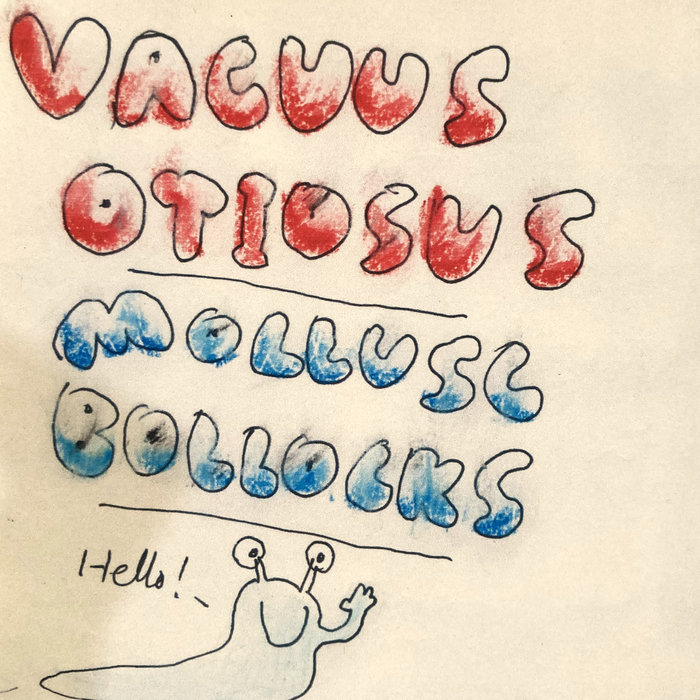 VACUUS
OTIOSUS
MOLLUSC
BOLLOCKS
Hello!